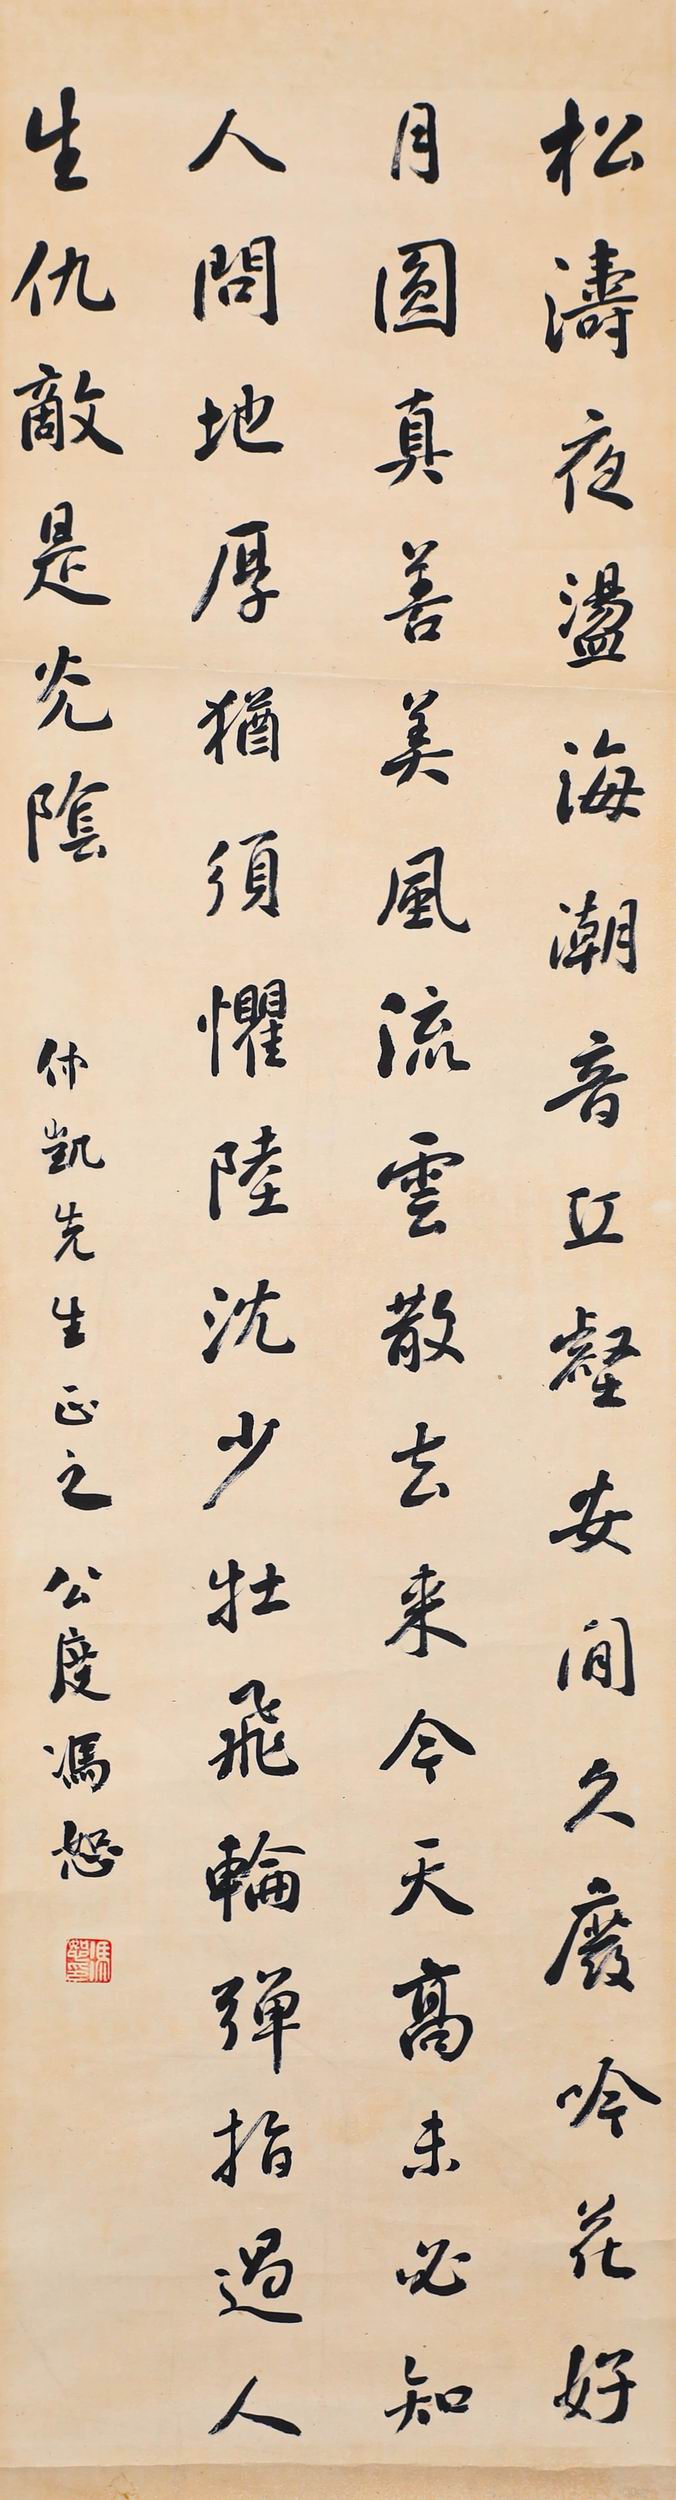 松濤夜盪海潮音丘壑安閒久廢吟花好
月圓真善美風流雲散去来今天高未必知
人問地厚猶須懼陸沈少壮飛輪弹指過人
生仇敵是光陰
仲凱先生正之 公度馮恕
馮恕之印